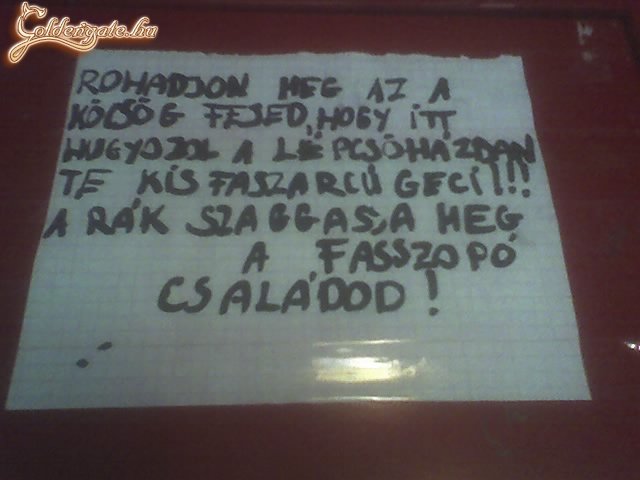 Goldengate.hu
ROHADJON MEG AZ A
KÖCSÖG FEJED, HOGY ITT
HUGYOZOL A LÉPCSŐHÁZDAN
TE KIS FASZARCÚ GECI!!!
A RÁK SZAGGASSA MEG
A FASSZOPÓ
CSALÁDOD!